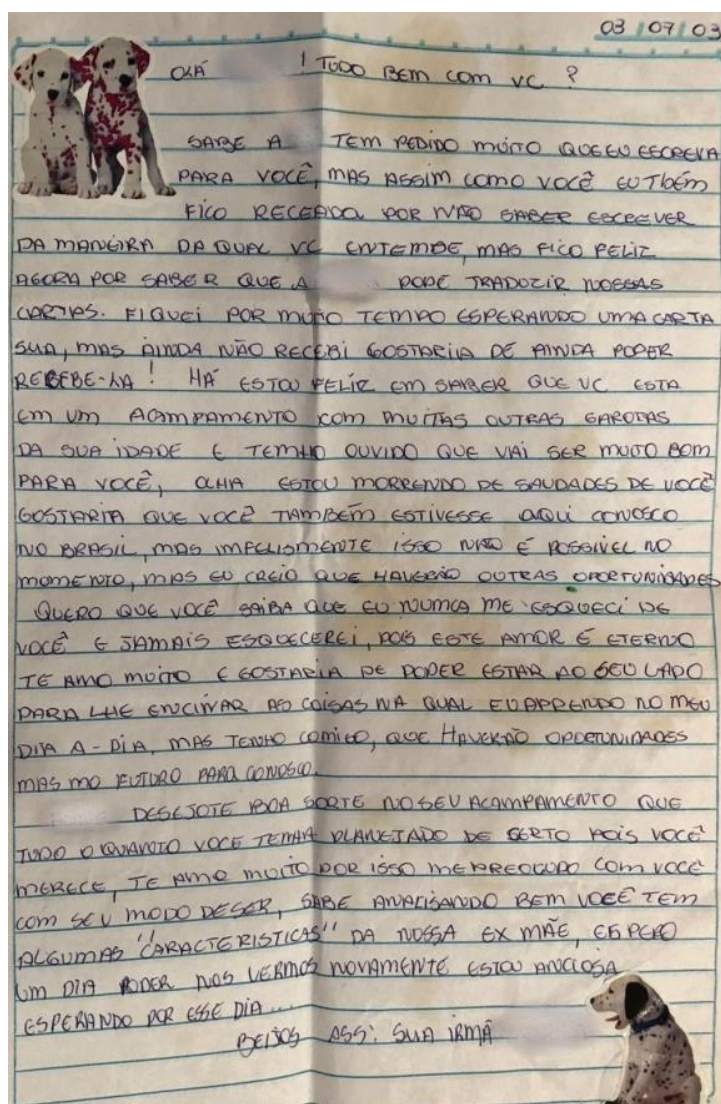 03/07/03
OLÁ ! TUDO BEM COM VC ?
SABE A TEM PEDIDO MUITO QUE EU ESCREVA
PARA VOCÊ, MAS ASSIM COMO VOCÊ EU TBÉM
FICO RECEADA POR NÃO SABER ESCREVER
DA MANEIRA DA QUAL VC ENTEMDE, MAS FICO FELIZ
AGORA POR SABER QUE A PODE TRADUZIR NOSSAS
CARTAS. FIQUEI POR MUITO TEMPO ESPERANDO UMA CARTA
SUA, MAS AINDA NÃO RECEBI GOSTARIA DE AINDA PODER
REBEBE-LA ! HÁ ESTOU FELIZ EM SABER QUE VC ESTA
EM UM ACAMPAMENTO COM MUITAS OUTRAS GAROTAS
DA SUA IDADE E TEMHO OUVIDO QUE VAI SER MUITO BOM
PARA VOCÊ, OLHA ESTOU MORRENDO DE SAUDADES DE VOCÊ
GOSTARIA QUE VOCÊ TAMBÉM ESTIVESSE AQUI CONOSCO
NO BRASIL, MAS IMFELISMENTE ISSO NÃO É POSSÍVEL NO
MOMENTO, MAS EU CREIO QUE HAVERÃO OUTRAS OPORTUNIDADES
QUERO QUE VOCÊ SAIBA QUE EU NUMCA ME ESQUECI DE
VOCÊ E JAMAIS ESQUECEREI, POIS ESTE AMOR É ETERNO
TE AMO MUITO E GOSTARIA DE PODER ESTAR AO SEU LADO
PARA LHE ENCINAR AS COISAS NA QUAL EU APRENDO NO MEU
DIA A-DIA, MAS TENHO COMIGO, QUE HAVERÃO OPORTUNIDADES
MAS MO FUTURO PARA CONOSCO.
DESEJOTE BOA SORTE NO SEU ACAMPAMENTO QUE
TUDO O QUANTO VOCE TENHA PLANEJADO DE CERTO POIS VOCÊ
MERECE, TE AMO MUITO POR ISSO ME PREOCUPO COM VOCÊ
COM SEU MODO DE SER, SABE ANALISANDO BEM VOCÊ TEM
ALGUMAS "CARACTERISTICAS" DA NOSSA EX MÃE, ESPERO
UM DIA PODER NOS VERMOS NOVAMENTE ESTOU ANCIOSA
ESPERANDO POR ESSE DIA...
BEIJOS ASS: SUA IRMÃ